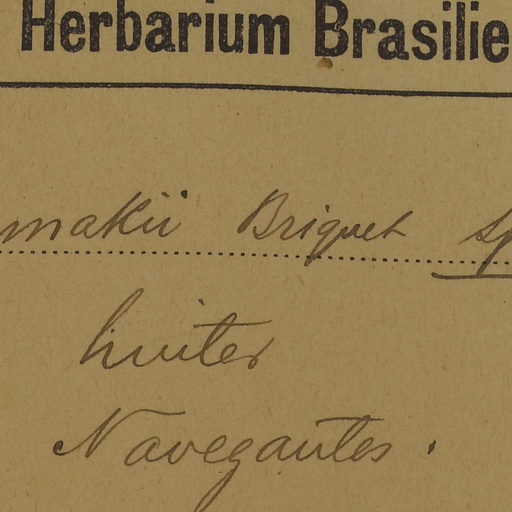 Herbarium Brasilie
makii Briquet sp
hinter
Navegantes.